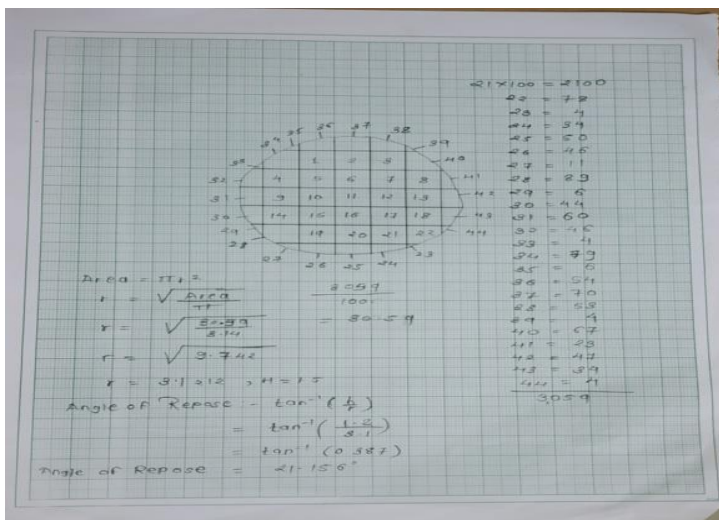 21×100 = 2100
22 = 78
23 = 4
24 = 34
25 = 50
26 = 45
27 = 11
28 = 89
29 = 6
30 = 44
31 = 60
32 = 45
33 = 4
34 = 79
35 = 6
36 = 54
37 = 70
38 = 53
39 = 4
40 = 67
41 = 23
42 = 47
43 = 34
44 = 4
3059
34 35 36 37 38 39
33 1 2 3 40
32 4 5 6 7 8 41
31 9 10 11 12 13 42
30 14 15 16 17 18 43
29 19 20 21 22 44
28
27 26 25 24 23
Area = πr²
r = √Area/π
r = √30.59/3.14
r = √9.742
r = 3.1212 , H = 1.5
3059/100
= 30.59
Angle of Repose - tan⁻¹ (h/r)
= tan⁻¹ (1.2/3.1)
= tan⁻¹ (0.387)
Angle of Repose = 21.156°